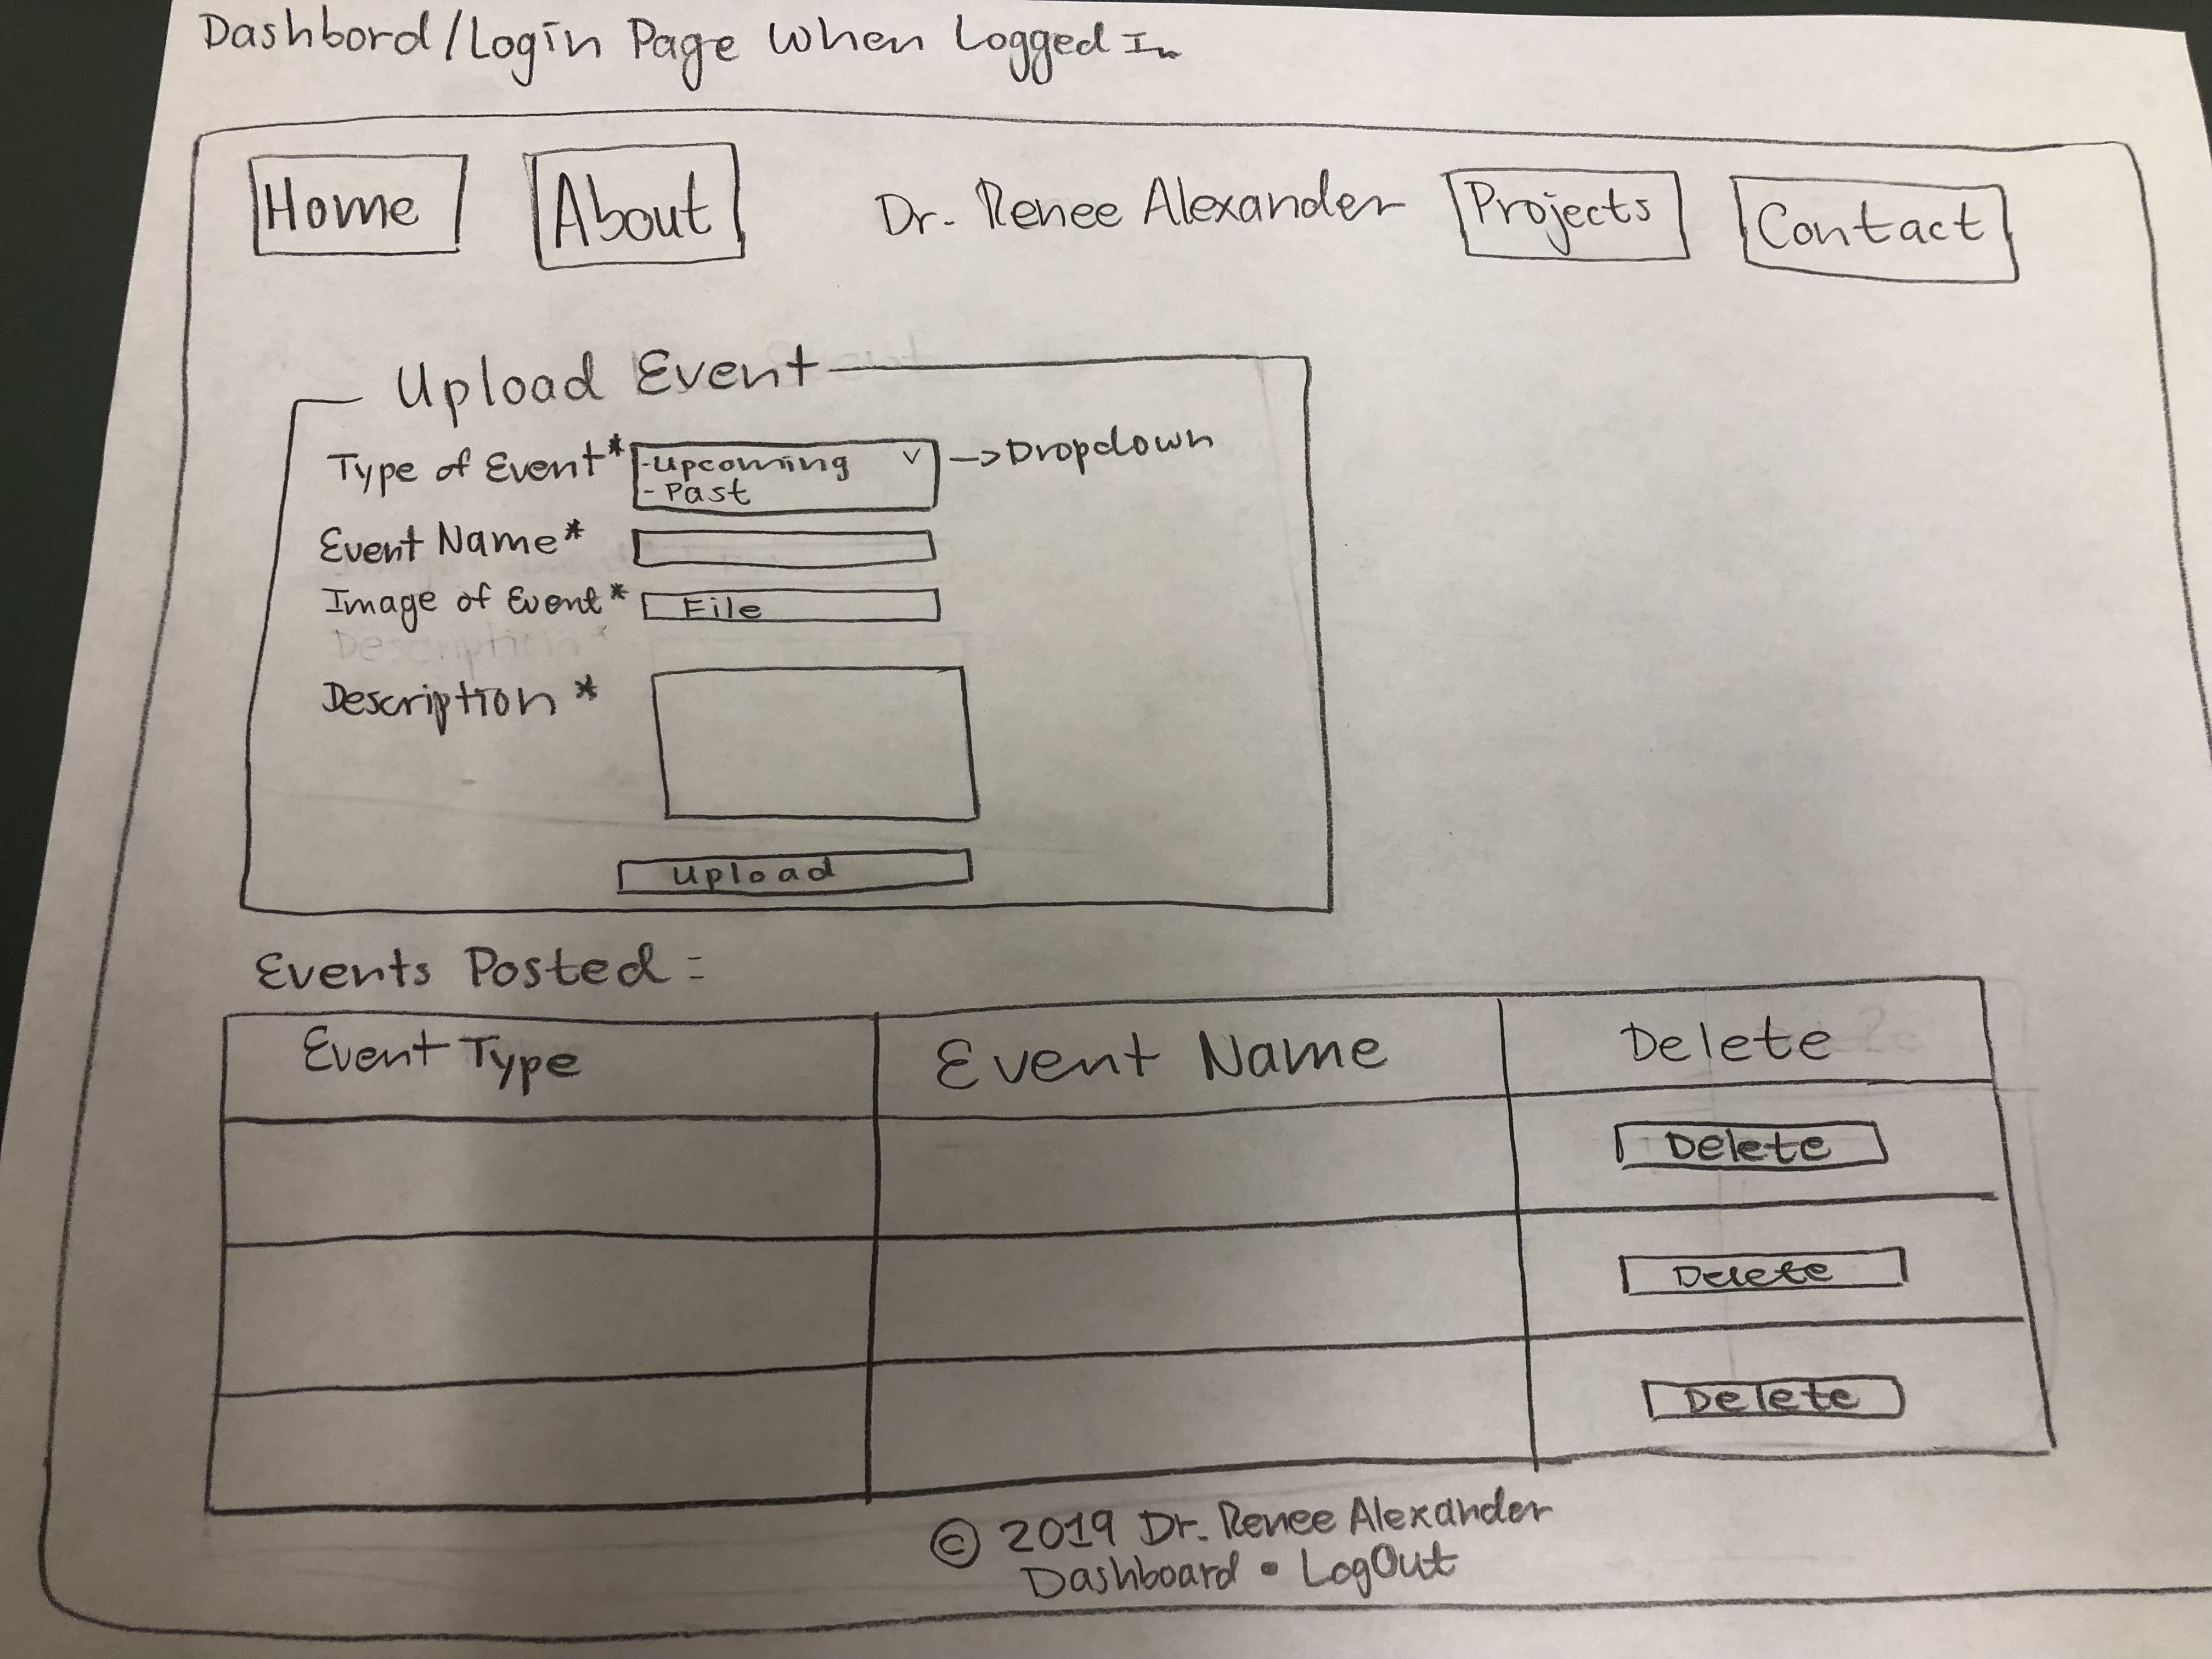 Dashbord/Login Page When Logged In
Home About Dr. Renee Alexander Projects Contact
Upload Event
Type of Event* -Upcoming v -> Dropdown
- Past
Event Name*
Image of Event* File
Description*
Description *
Upload
Events Posted :
Event Type Event Name Delete
Delete
Delete
Delete
© 2019 Dr. Renee Alexander
Dashboard • LogOut